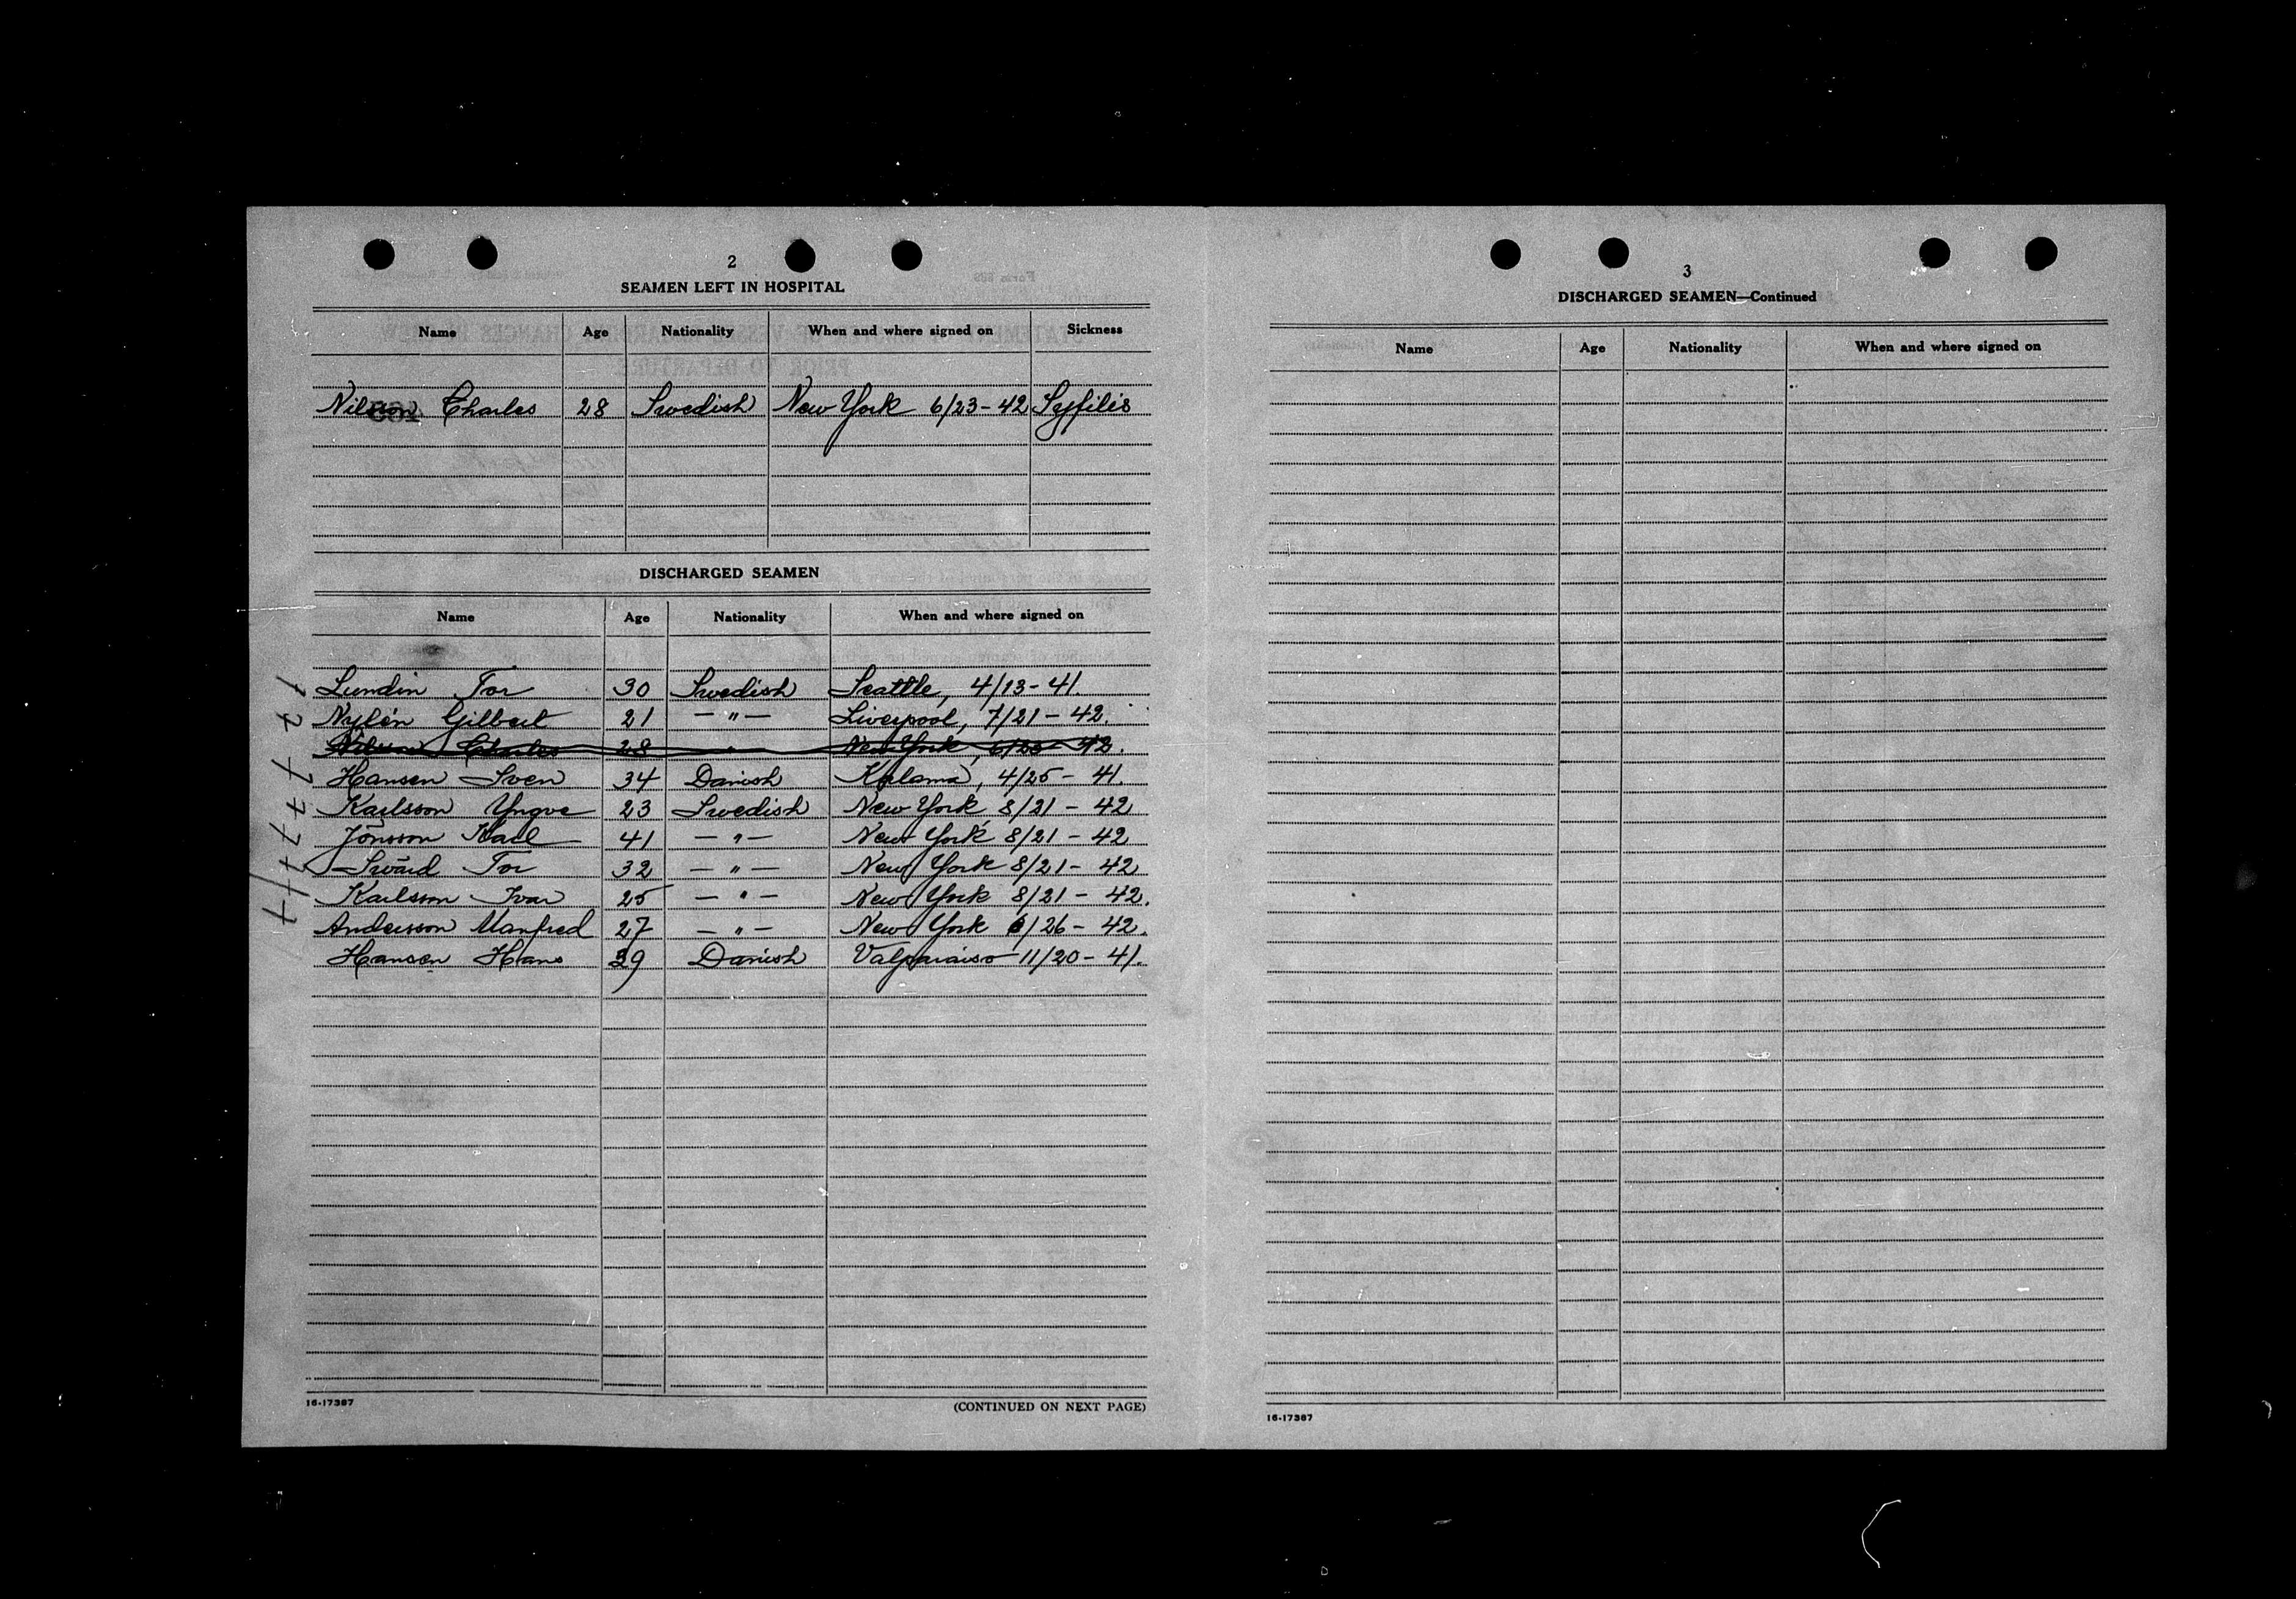 2
SEAMEN LEFT IN HOSPITAL
Name Age Nationality When and where signed on Sickness
Nilsson Charles 28 Swedish New York 6/23-42 Syfilis
DISCHARGED SEAMEN
Name Age Nationality When and where signed on
Lundin Tor 30 Swedish Seattle, 4/13-41.
Nylén Gilbert 21 — " — Liverpool, 7/21-42.
Nilsson Charles 28 " New York, 6/23-42.
Hansen Sven 34 Danish Kalama, 4/25-41.
Karlsson Yngve 23 Swedish New York 8/21-42
Jönsson Karl 41 — " — New York 8/21-42
Swärd Tor 32 — " — New York 8/21-42
Karlsson Ivar 25 — " — New York 8/21-42.
Andersson Manfred 27 — " — New York 6/26-42.
Hansen Hans 39 Danish Valparaiso 11/20-41.
16-17387
(CONTINUED ON NEXT PAGE)
3
DISCHARGED SEAMEN—Continued
Name Age Nationality When and where signed on
16-17387